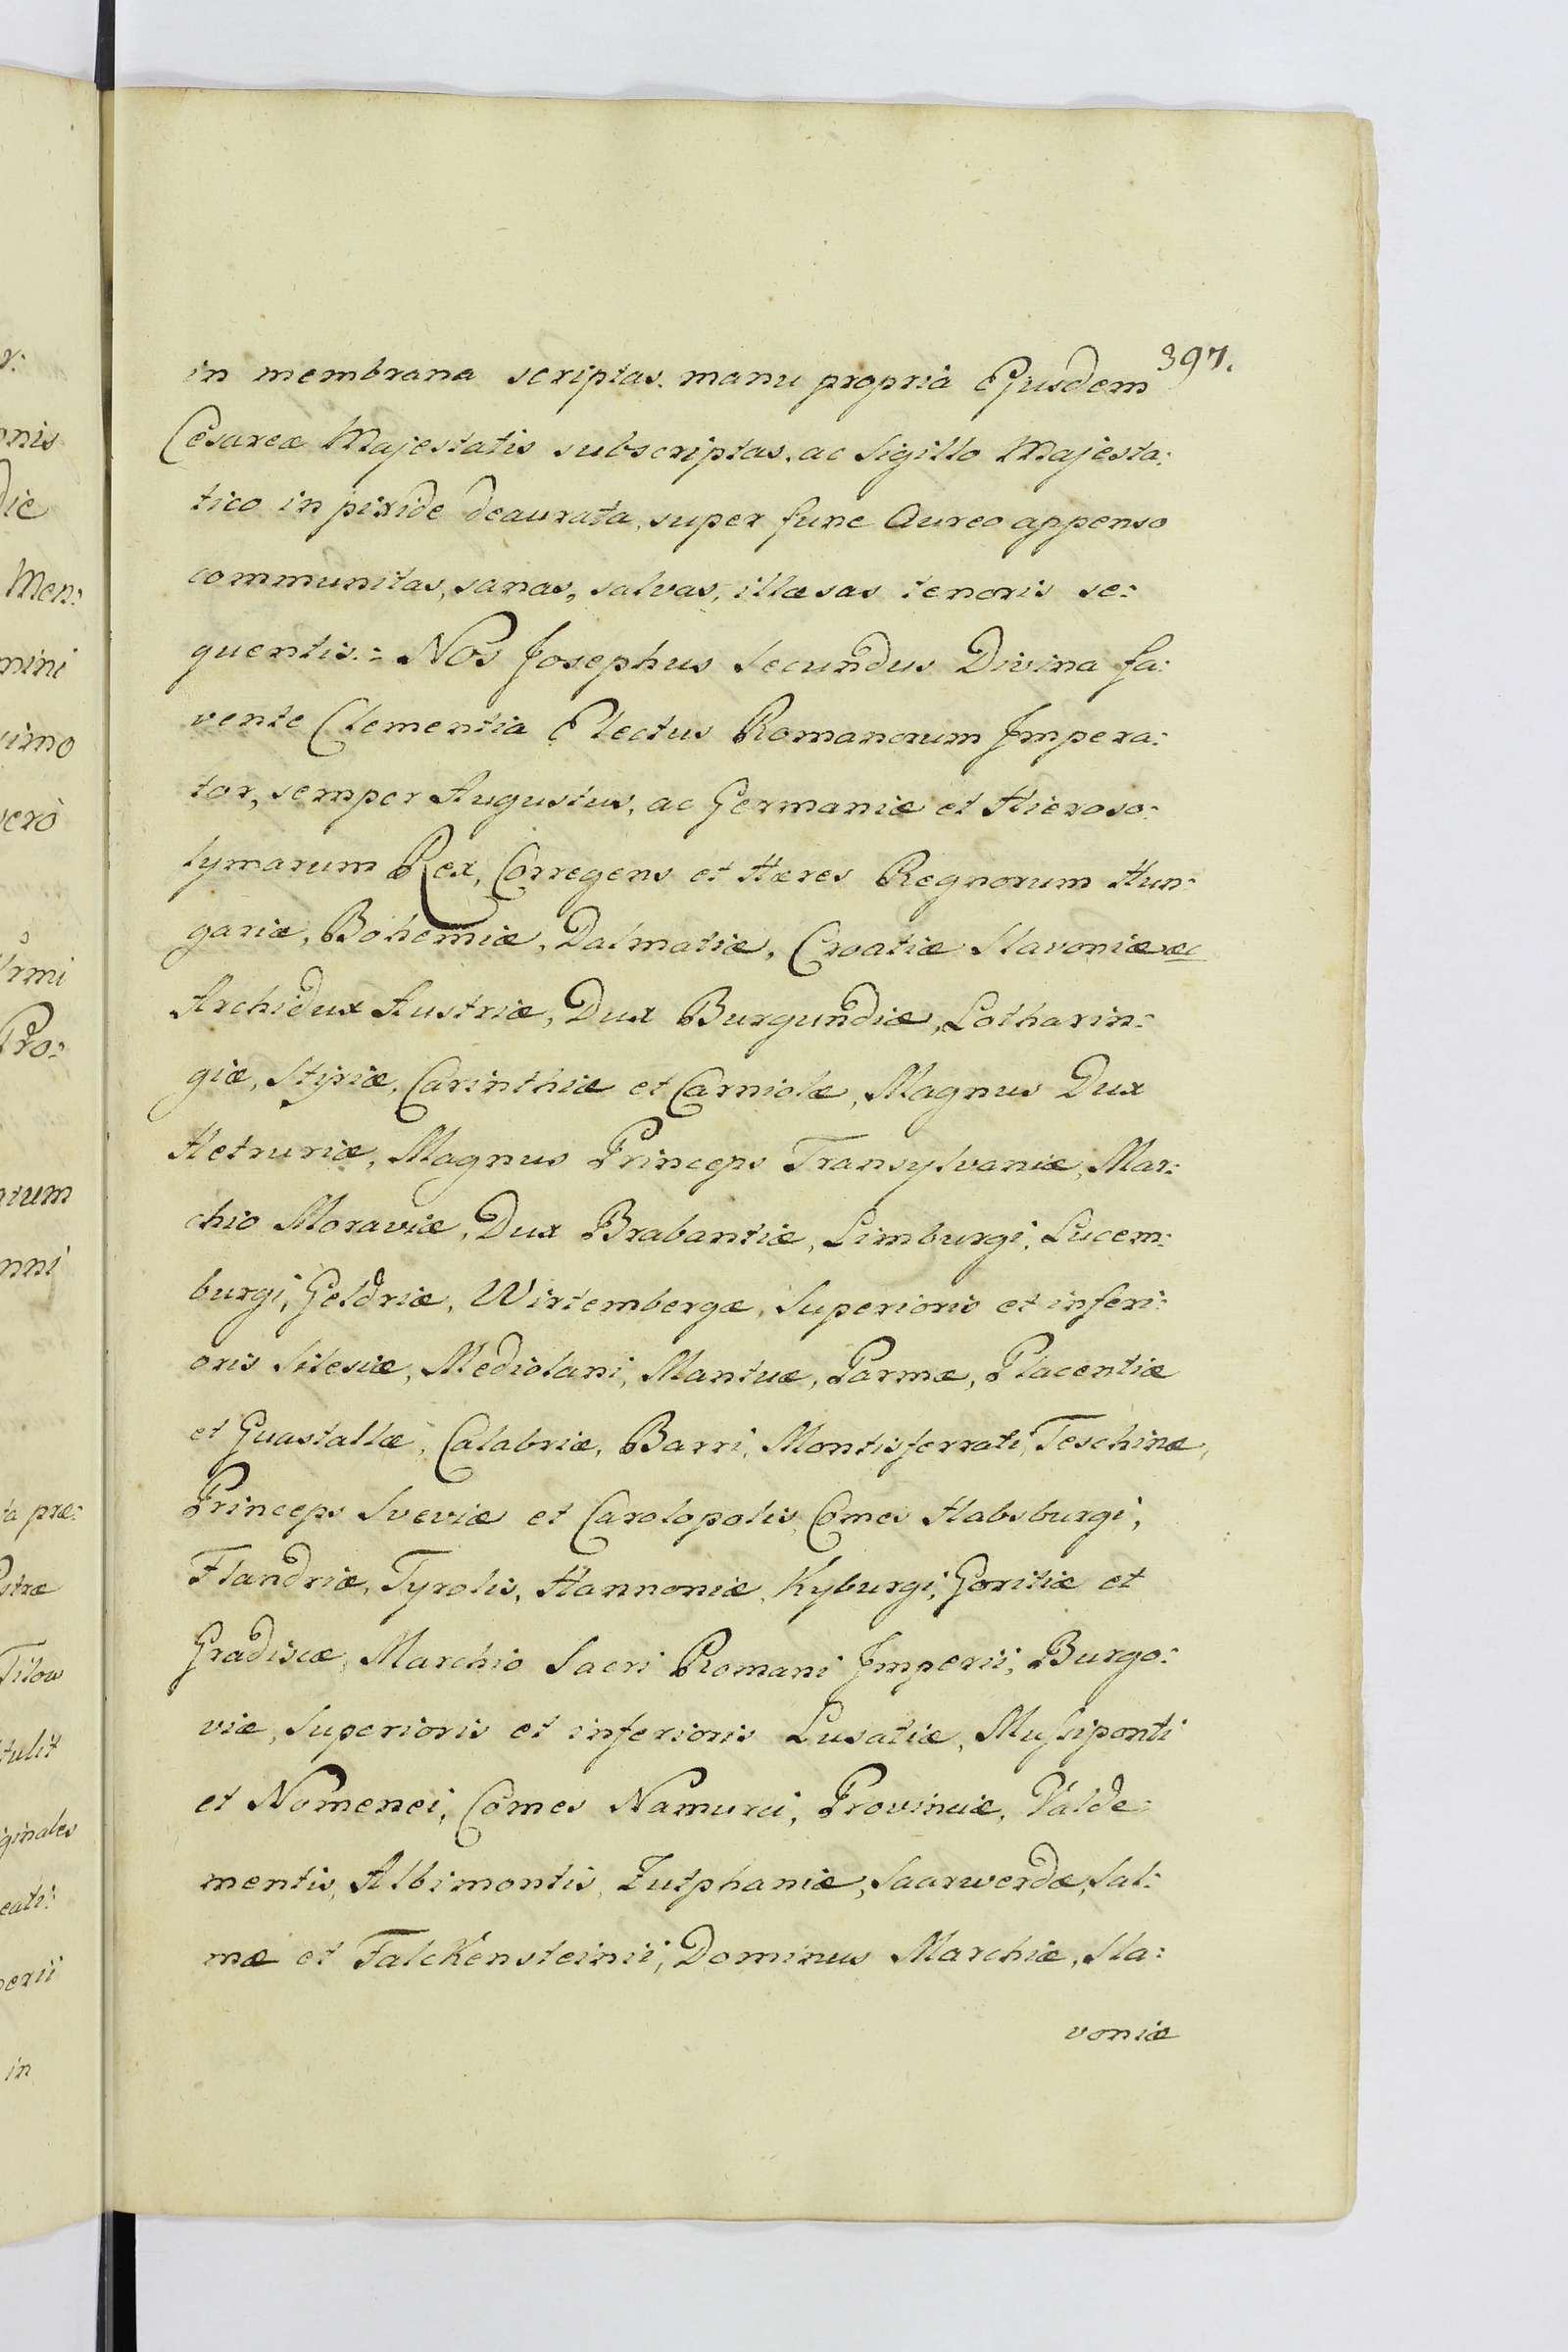 397.
in membrana scriptas. manu propria Ejusdem
Cesareæ Majestatis subscriptas. ac Sigillo Majesta:
tico in pixide deaurata, super fune Aureo appenso
communitas, sanas, salvas, illæsas tenoris se:
quentis.= Nos Josephus Secundus Divina fa:
vente Clementia Electus Romanorum Impera:
tor, semper Augustus, ac Germaniæ et Hieroso:
lymarum Rex, Corregens et Hæres Regnorum Hun:
gariæ, Bohemiæ, Dalmatiæ, Croatiæ Slavoniæ
Archidux Austriæ, Dux Burgundiæ, Lotharin:
giæ, Styriæ, Carinthiæ et Carniolæ, Magnus Dux
Hetruriæ, Magnus Princeps Transylvaniæ, Mar:
chio Moraviæ, Dux Brabantiæ, Limburgi, Lucem:
burgi, Geldriæ, Wirtembergæ, Superioris et inferi:
oris Silesiæ, Mediolani, Mantuæ, Parmæ, Placentiæ
et Guastallæ, Calabriæ, Barri, Montisferrati, Teschinæ,
Princeps Sveviæ et Carolopolis, Comes Habsburgi,
Flandriæ, Tyrolis, Hannoniæ, Kyburgi, Goritiæ et
Gradiscæ, Marchio Sacri Romani Imperii, Burgo:
viæ, Superioris et inferioris Lusatiæ, Mussiponti
et Nomenei, Comes Namurci, Provinciæ, Valde:
mentis, Albimontis, Zutphaniæ, Saarwerdæ, Sal:
mæ et Falckensteinii, Dominus Marchiæ, Sla:
voniæ
onis
die
Men:
mini
vero
Pro:
nni
ta præ:
Tilow
tulit
in